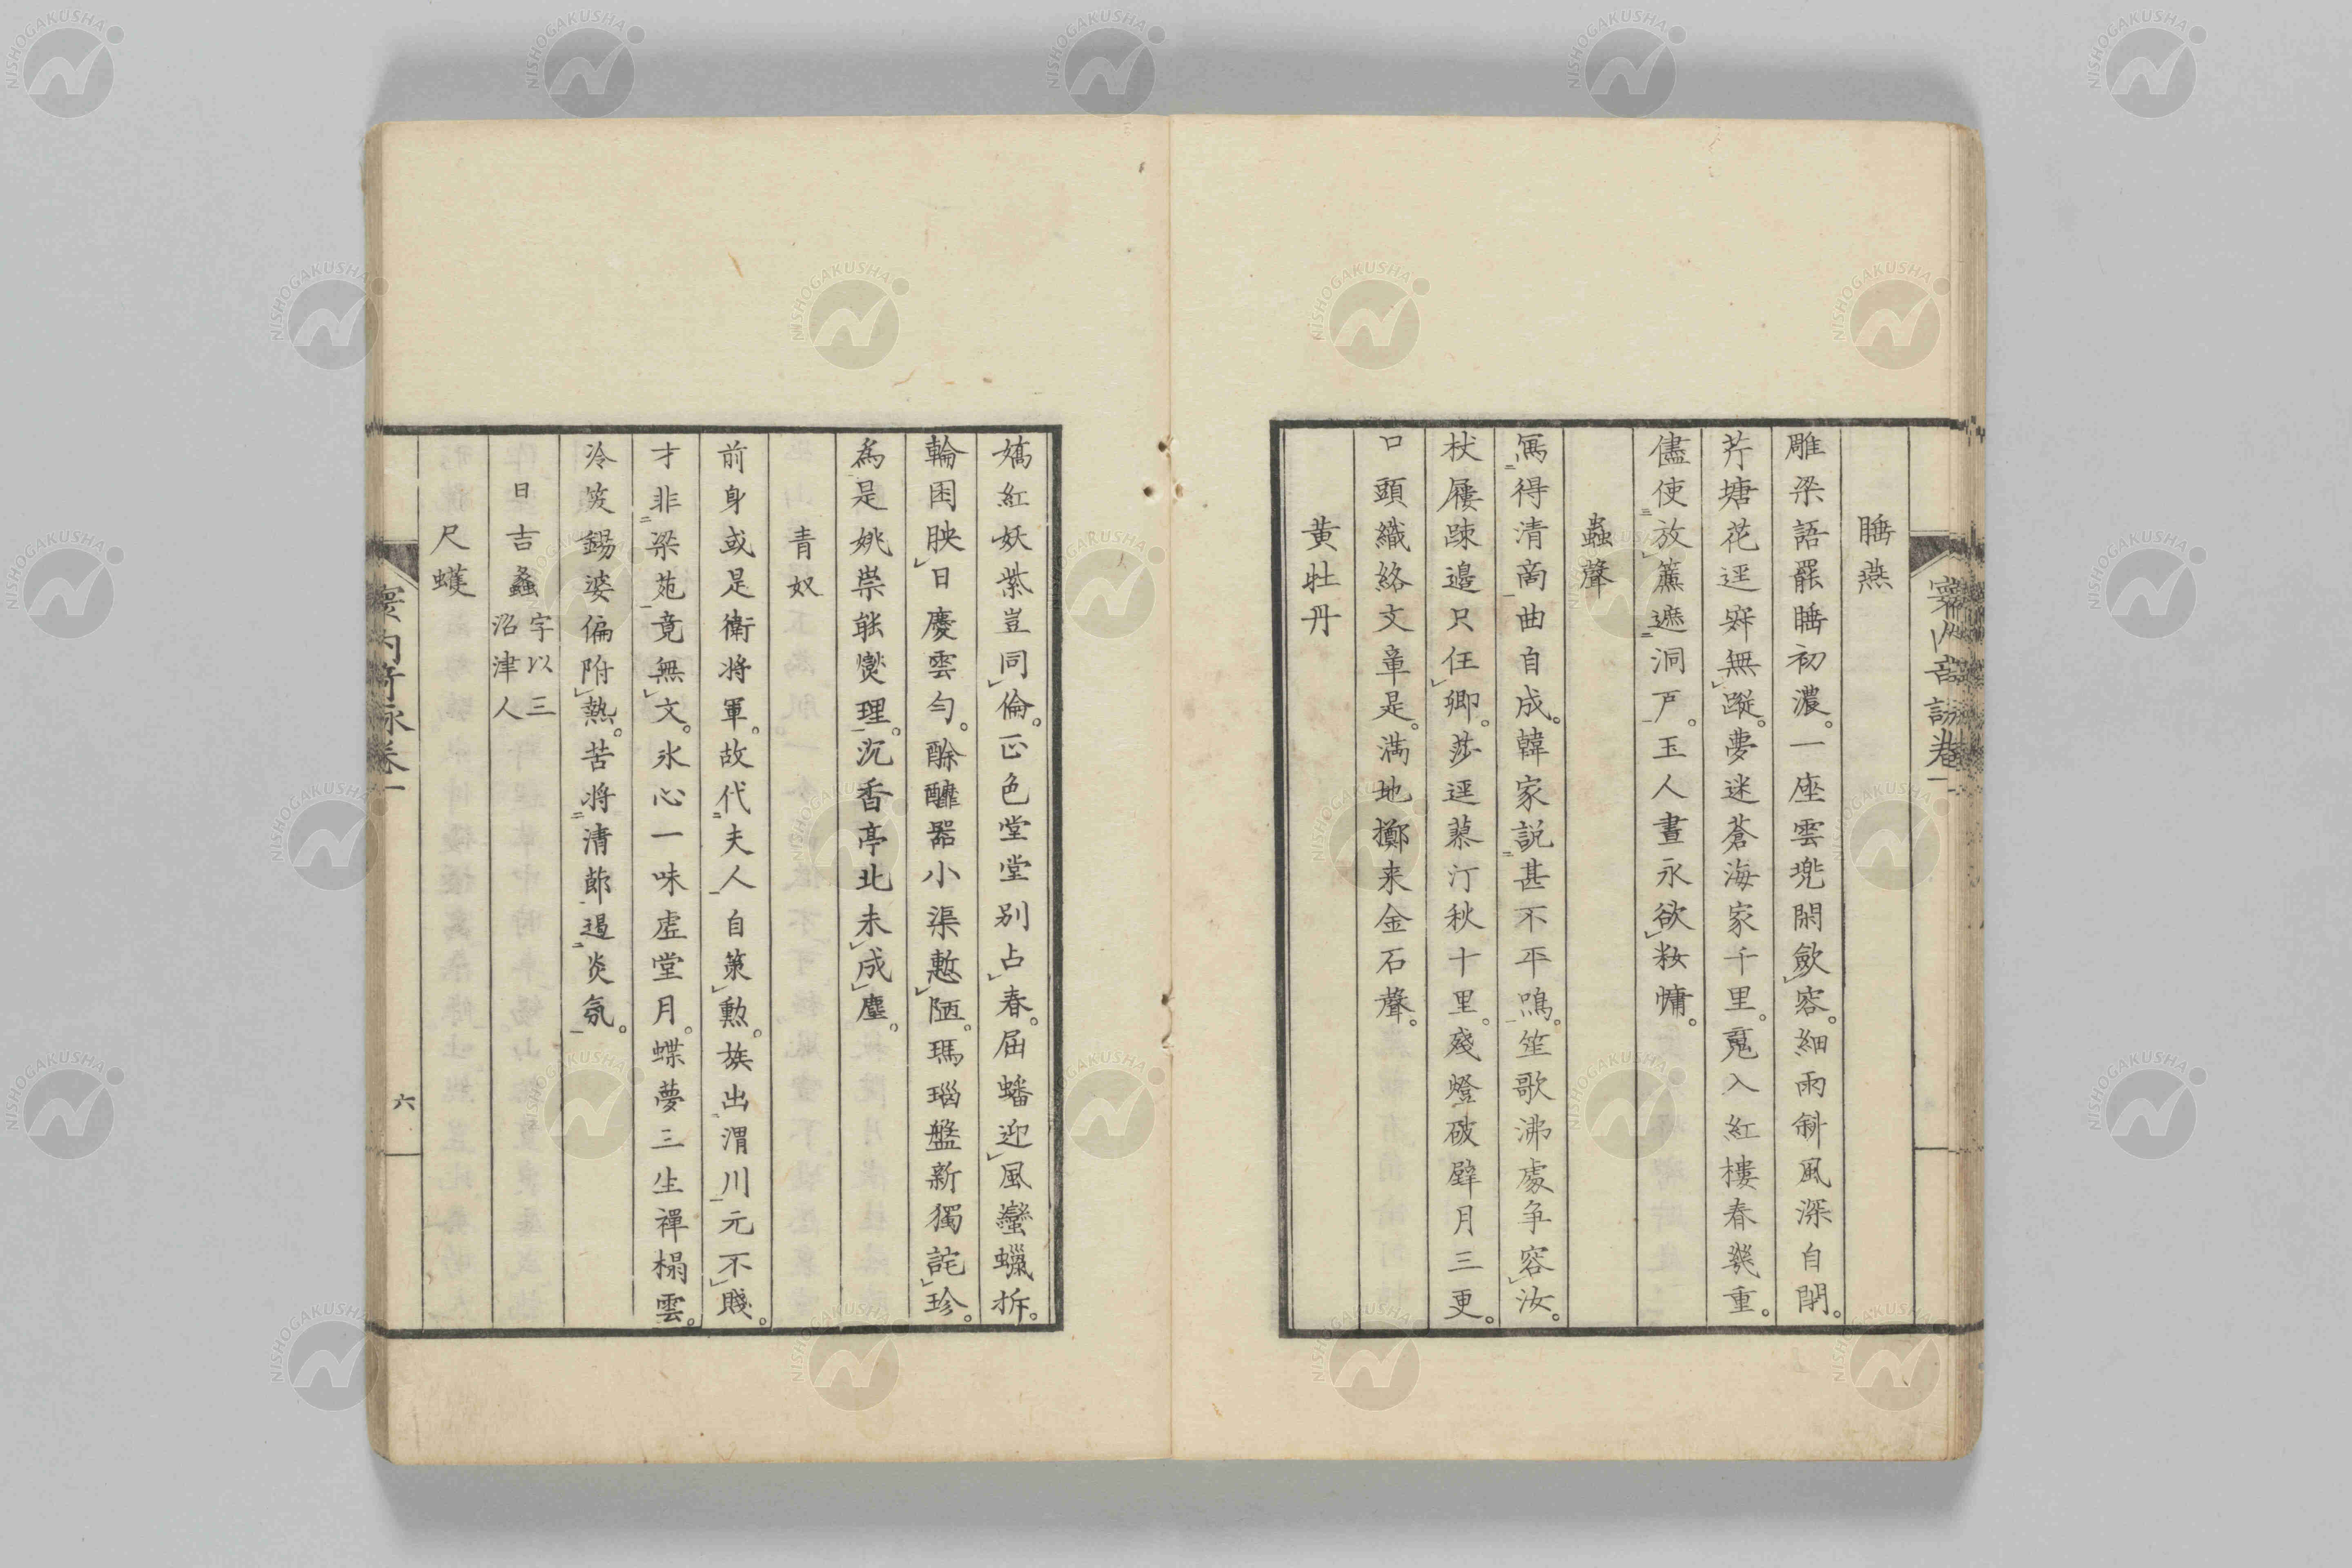 睡燕
雕梁語罷睡初濃。一座雲兜閑斂容。細雨斜風深自閉。
芹塘花逕舞無蹤。夢迷蒼海家千里。寬入紅樓春幾重。
儘使放簾遮洞戶。玉人晝永欲粧慵。
蟲聲
寫得清商曲自成。韓家説甚不平鳴。笙歌沸處争容汝。
杖屨踈邊只任卿。莎逕蓼汀秋十里。殘燈破壁月三更。
口頭織絡文章是。満地擲来金石聲。
黄牡丹
嬌紅妖紫豈同倫。正色堂堂別占春。屈蟠迎風蠻蠟拆。
輪囷映日慶雲勻。酴醿器小渠慙陋。瑪瑙盤新獨詫珍。
為是姚祟能燮理。沉香亭北未成塵。
青奴
前身或是衛将軍。故代夫人自策勲。族出渭川元不賤。
才非梁苑竟無文。氷心一味虚堂月。蝶夢三生禪榻雲。
冷笑錫婆偏附熱。苦将清節遏炎氛。
日吉蠡 字以三 沼津人
尺蠖
寰内奇詠卷一
六